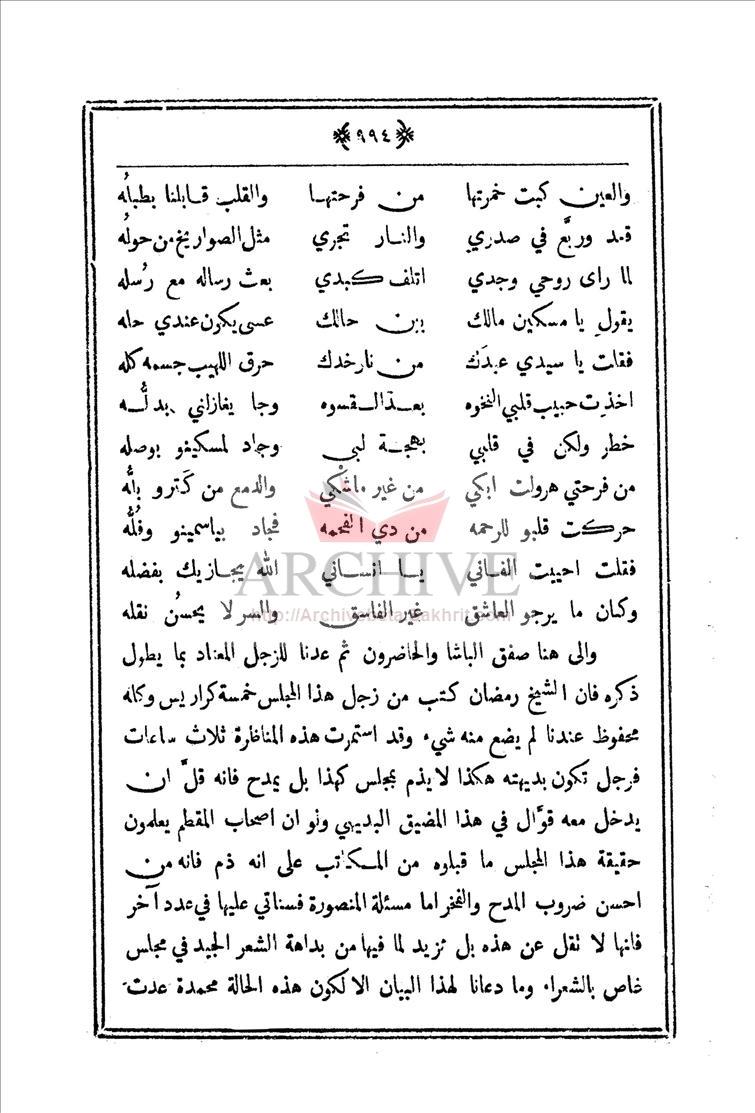 ﴿٩٩٤﴾
والعين كبت خمرتها من فرحتها والقلب قابلنا بطبلُه
قد وربَّع في صدري والنار تجري مثل الصواريخ من حولُه
لما راى روحي وجدي اتلف كبدي بعث رساله مع رُسله
يقول يا مسكين مالك بين حالك عسى يكون عندي حله
فقلت يا سيدي عبدَك من نار خدك حرق اللهيب جسمه كله
اخذت حبيب قلبي النخوه بعد القسوه وجا يغازلني بدلُّه
خطر ولكن في قلبي بهجة لبي وجاد لمسكينو بوصله
من فرحتي هرولت ابكي من غير ماشكي والدمع من كترو بلُّه
حركت قلبو للرحمه من دي الفحمه فجاد بياسمينو وفُلُّه
فقلت احييت الفاني يا انساني الله يجازيك بفضله
وكان ما يرجو العاشق غير الفاسق والسر لا يحسن نقله
والى هنا صفق الباشا والحاضرون ثم عدنا للزجل المعتاد بما يطول
ذكره فان الشيخ رمضان كتب من زجل هذا المجلس خمسة كراريس وكله
محفوظ عندنا لم يضع منه شيء وقد استمرت هذه المناظرة ثلاث ساعات
فرجل تكون بديهته هكذا لا يذم بمجلس كهذا بل يمدح فانه قلَّ ان
يدخل معه قوَّال في هذا المضيق البديهي ولو ان اصحاب المقطم يعلمون
حقيقة هذا المجلس ما قبلوه من المكاتب على انه ذم فانه من
احسن ضروب المدح والفخر اما مسئلة المنصورة فسناتي عليها في عدد آخر
فانها لا تقل عن هذه بل تزيد لما فيها من بداهة الشعر الجيد في مجلس
خاص بالشعراء وما دعانا لهذا البيان الا لكون هذه الحالة محمدة عدت
ARCHIVE
http://Archivebeta.Sakhrit.com